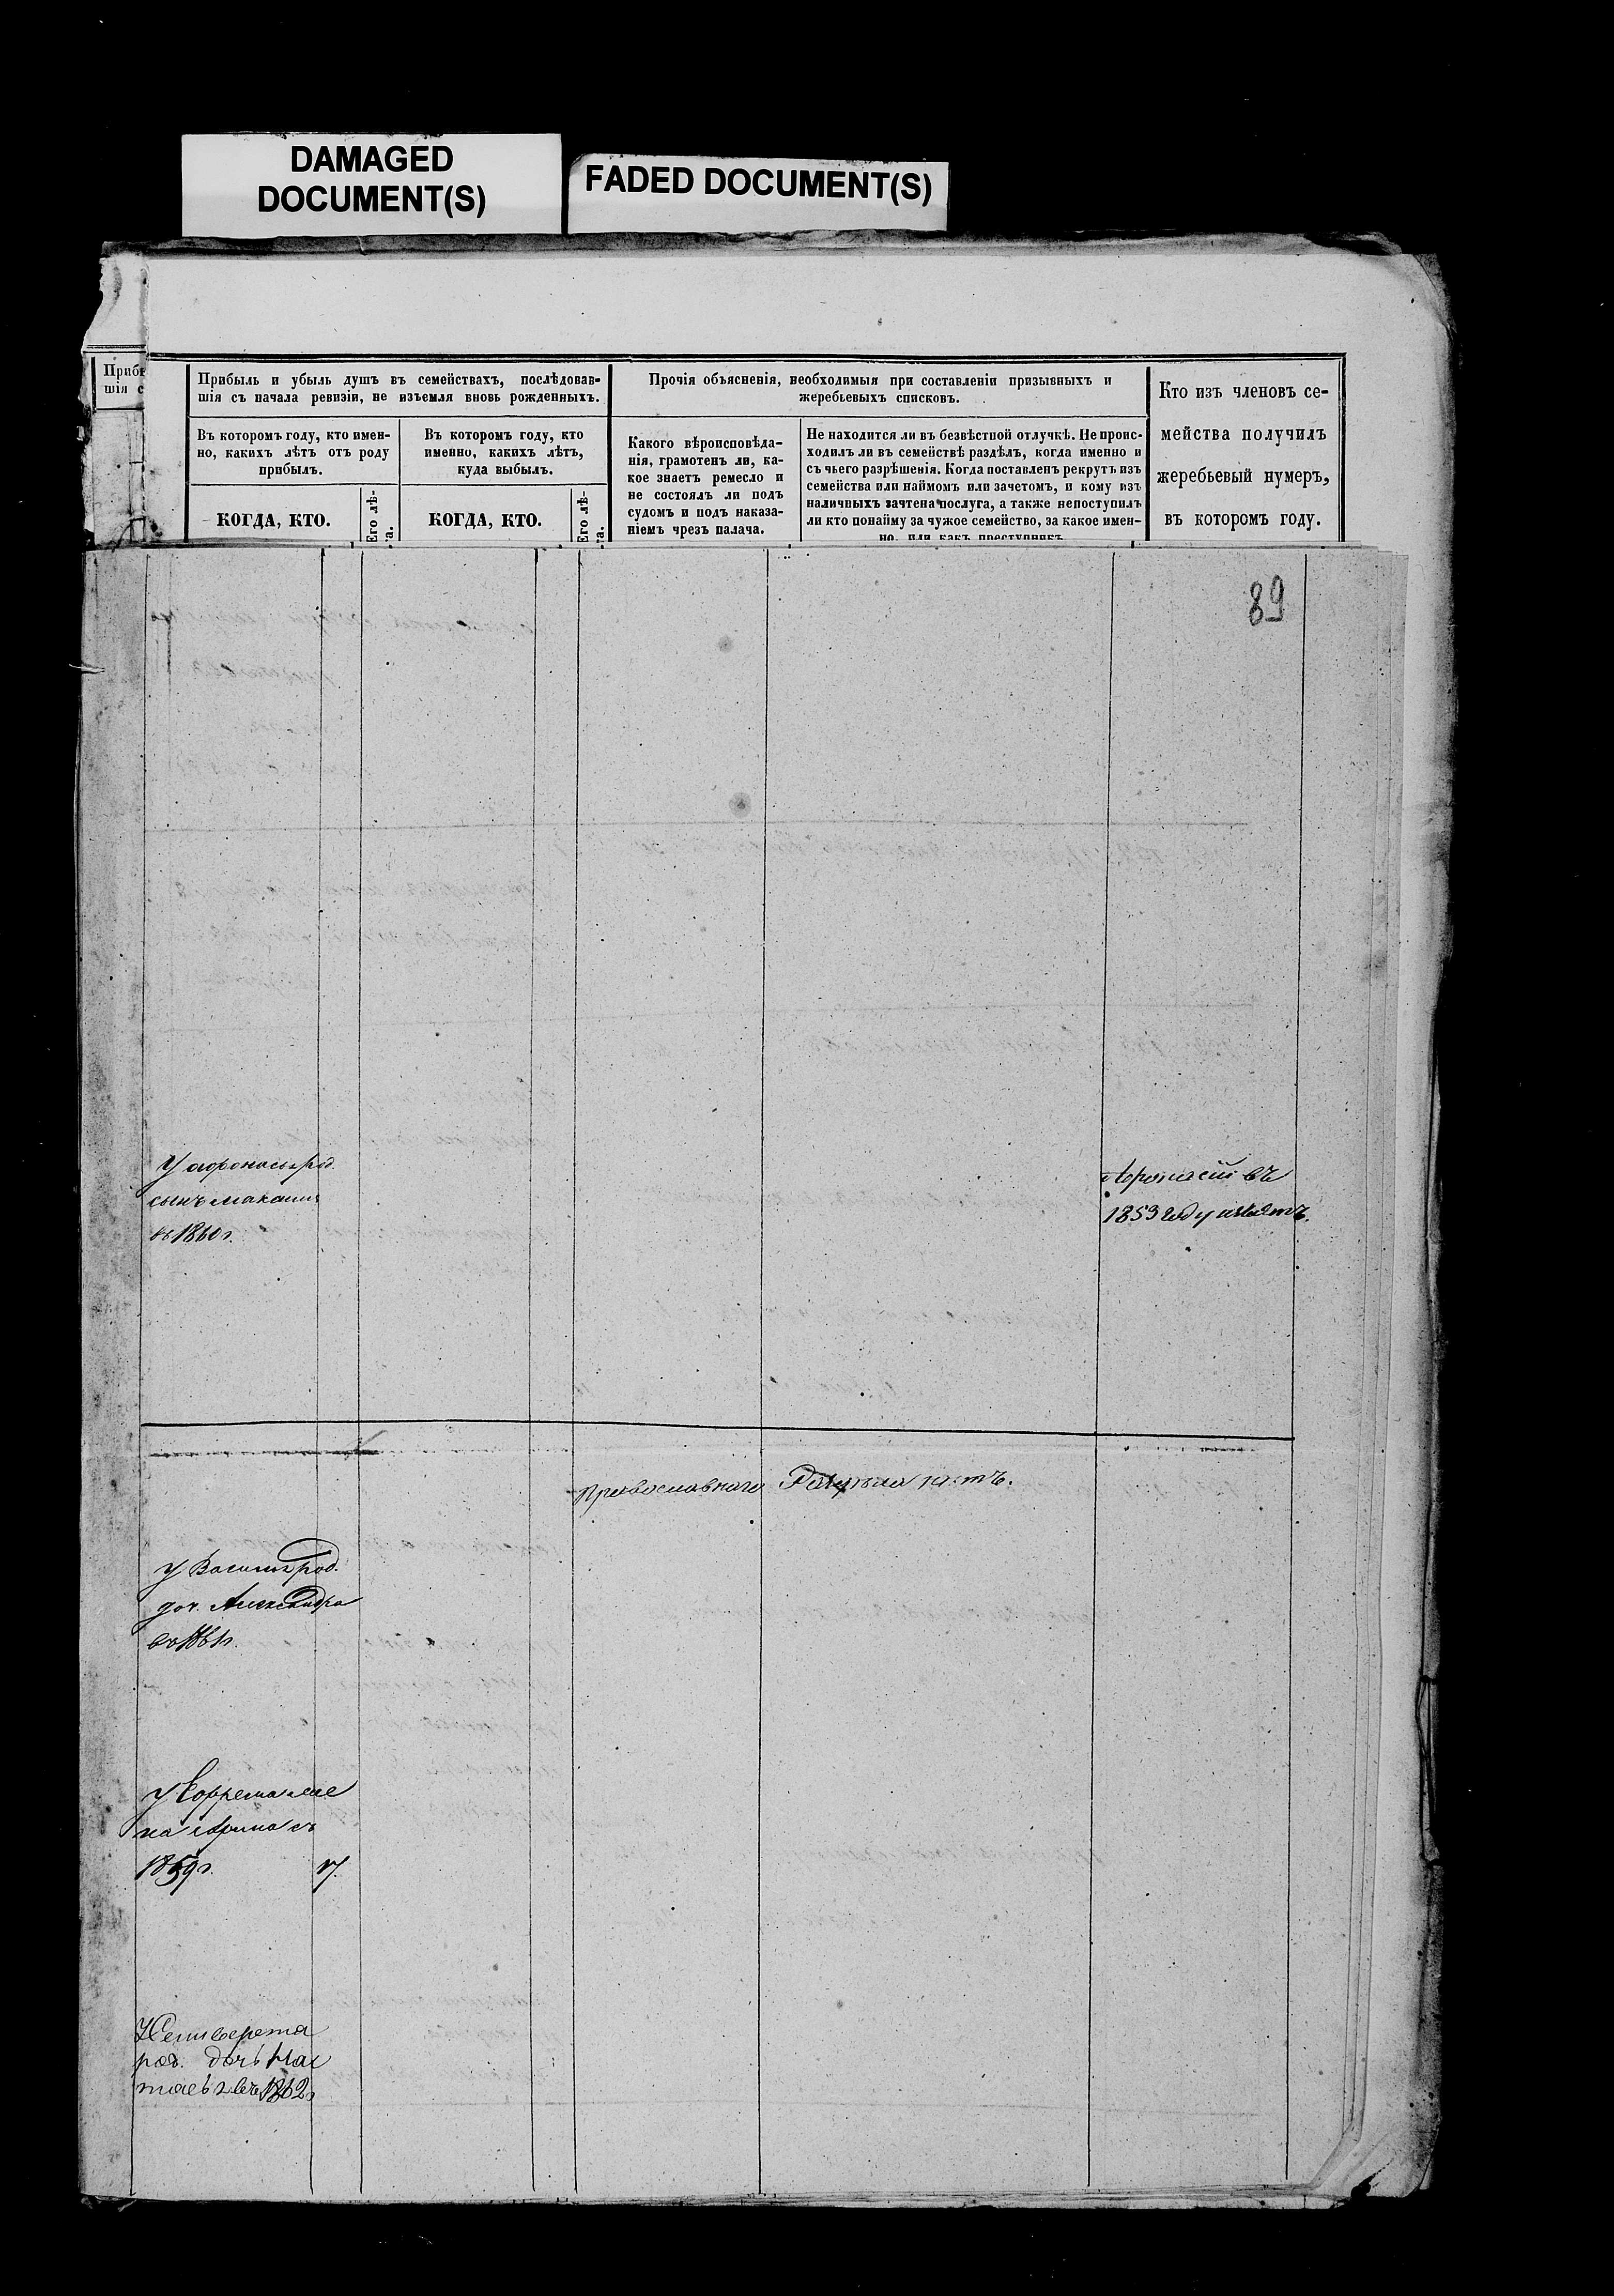 DAMAGED
DOCUMENT(S)
FADED DOCUMENT(S)
Приб
шія с
Прибыль и убыль душъ въ семействахъ, послѣдовав-
шія съ начала ревизіи, не изъемля вновь рожденныхъ.
Въ которомъ году, кто имен-
но, какихъ лѣтъ отъ роду
прибылъ.
КОГДА, КТО.
Его лѣ-
та.
Въ которомъ году, кто
именно, какихъ лѣтъ,
куда выбылъ.
КОГДА, КТО.
Его лѣ-
та.
Прочія объясненія, необходимыя при составленіи призывныхъ и
жеребьевыхъ списковъ.
Какого вѣроисповѣда-
нія, грамотенъ ли, ка-
кое знаетъ ремесло и
не состоялъ ли подъ
судомъ и подъ наказа-
ніемъ чрезъ палача.
Не находится ли въ безвѣстной отлучкѣ. Не проис-
ходилъ ли въ семействѣ раздѣлъ, когда именно и
съ чьего разрѣшенія. Когда поставленъ рекрутъ изъ
семейства или наймомъ или зачетомъ, и кому изъ
наличныхъ зачтена послуга, а также непоступилъ
ли кто понайму за чужое семейство, за какое имен-
но, или какъ преступникъ
Кто изъ членовъ се-
мейства получилъ
жеребьевый нумеръ,
въ которомъ году.
89
У афонасья род.
сынъ
в 1860 г.
Афонасій въ
1853 году
Православнаго
У Василья род.
доч. Александра
въ 1861 г.
У
на Арина съ
1859 г.
род. дочь Нас
въ 1862 г